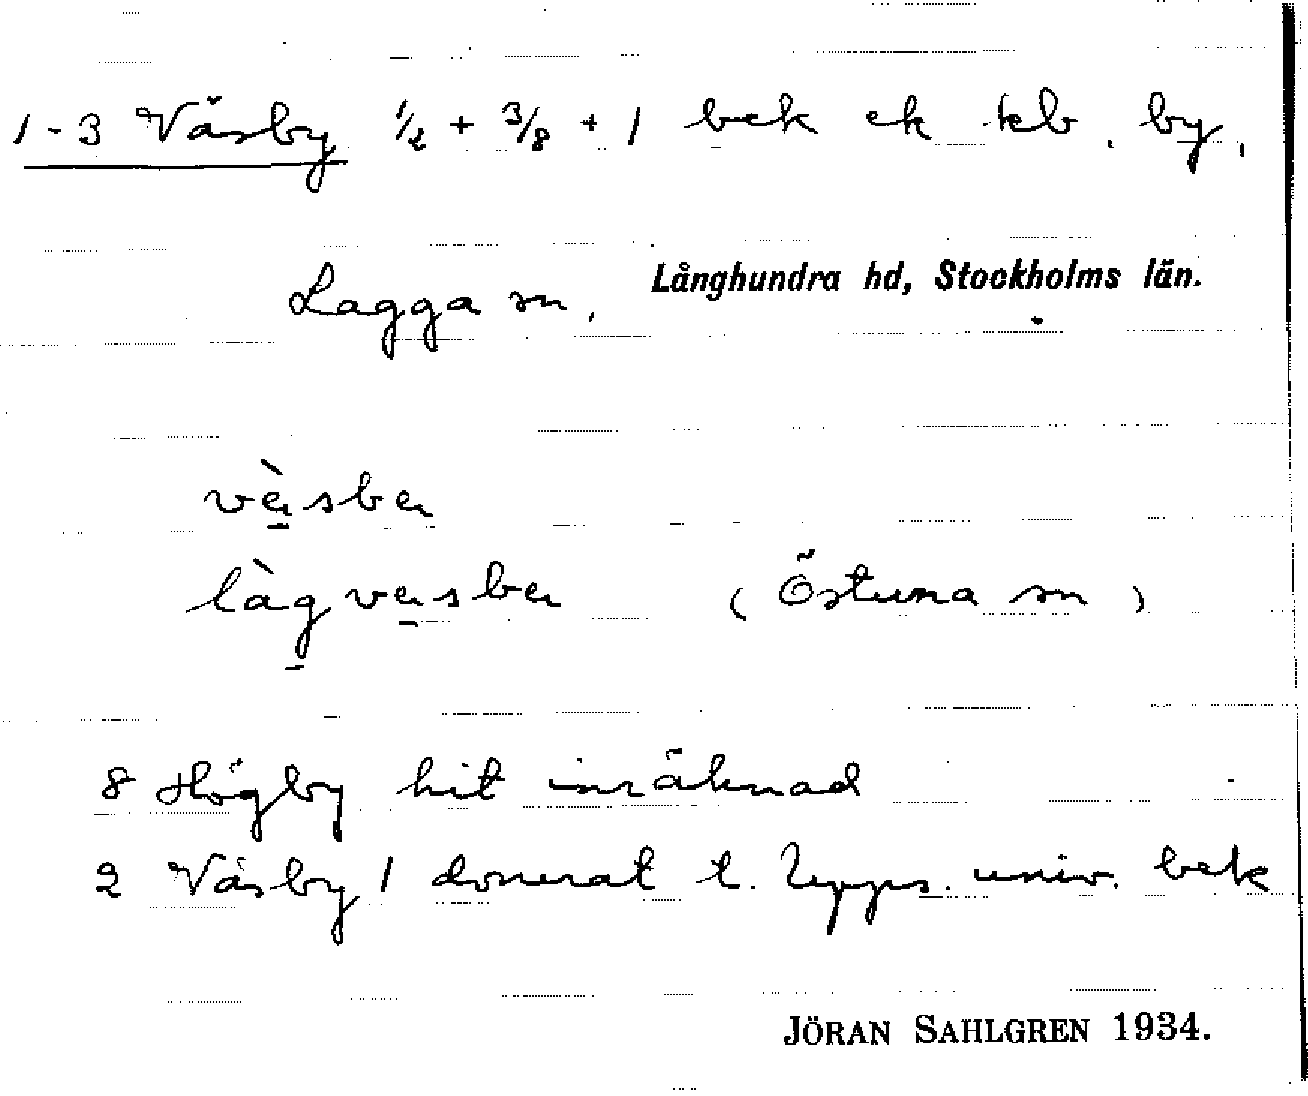 1-3 Väsby 1/2 + 3/8 + 1 bek ek kb. by,
Lagga sn, Långhundra hd, Stockholms län.
vèsbe
làgvesbe (Östuna sn)
8 Högby hit inräknad
2 Väsby 1 donerat t. Upps. univ. bek
JÖRAN SAHLGREN 1934.